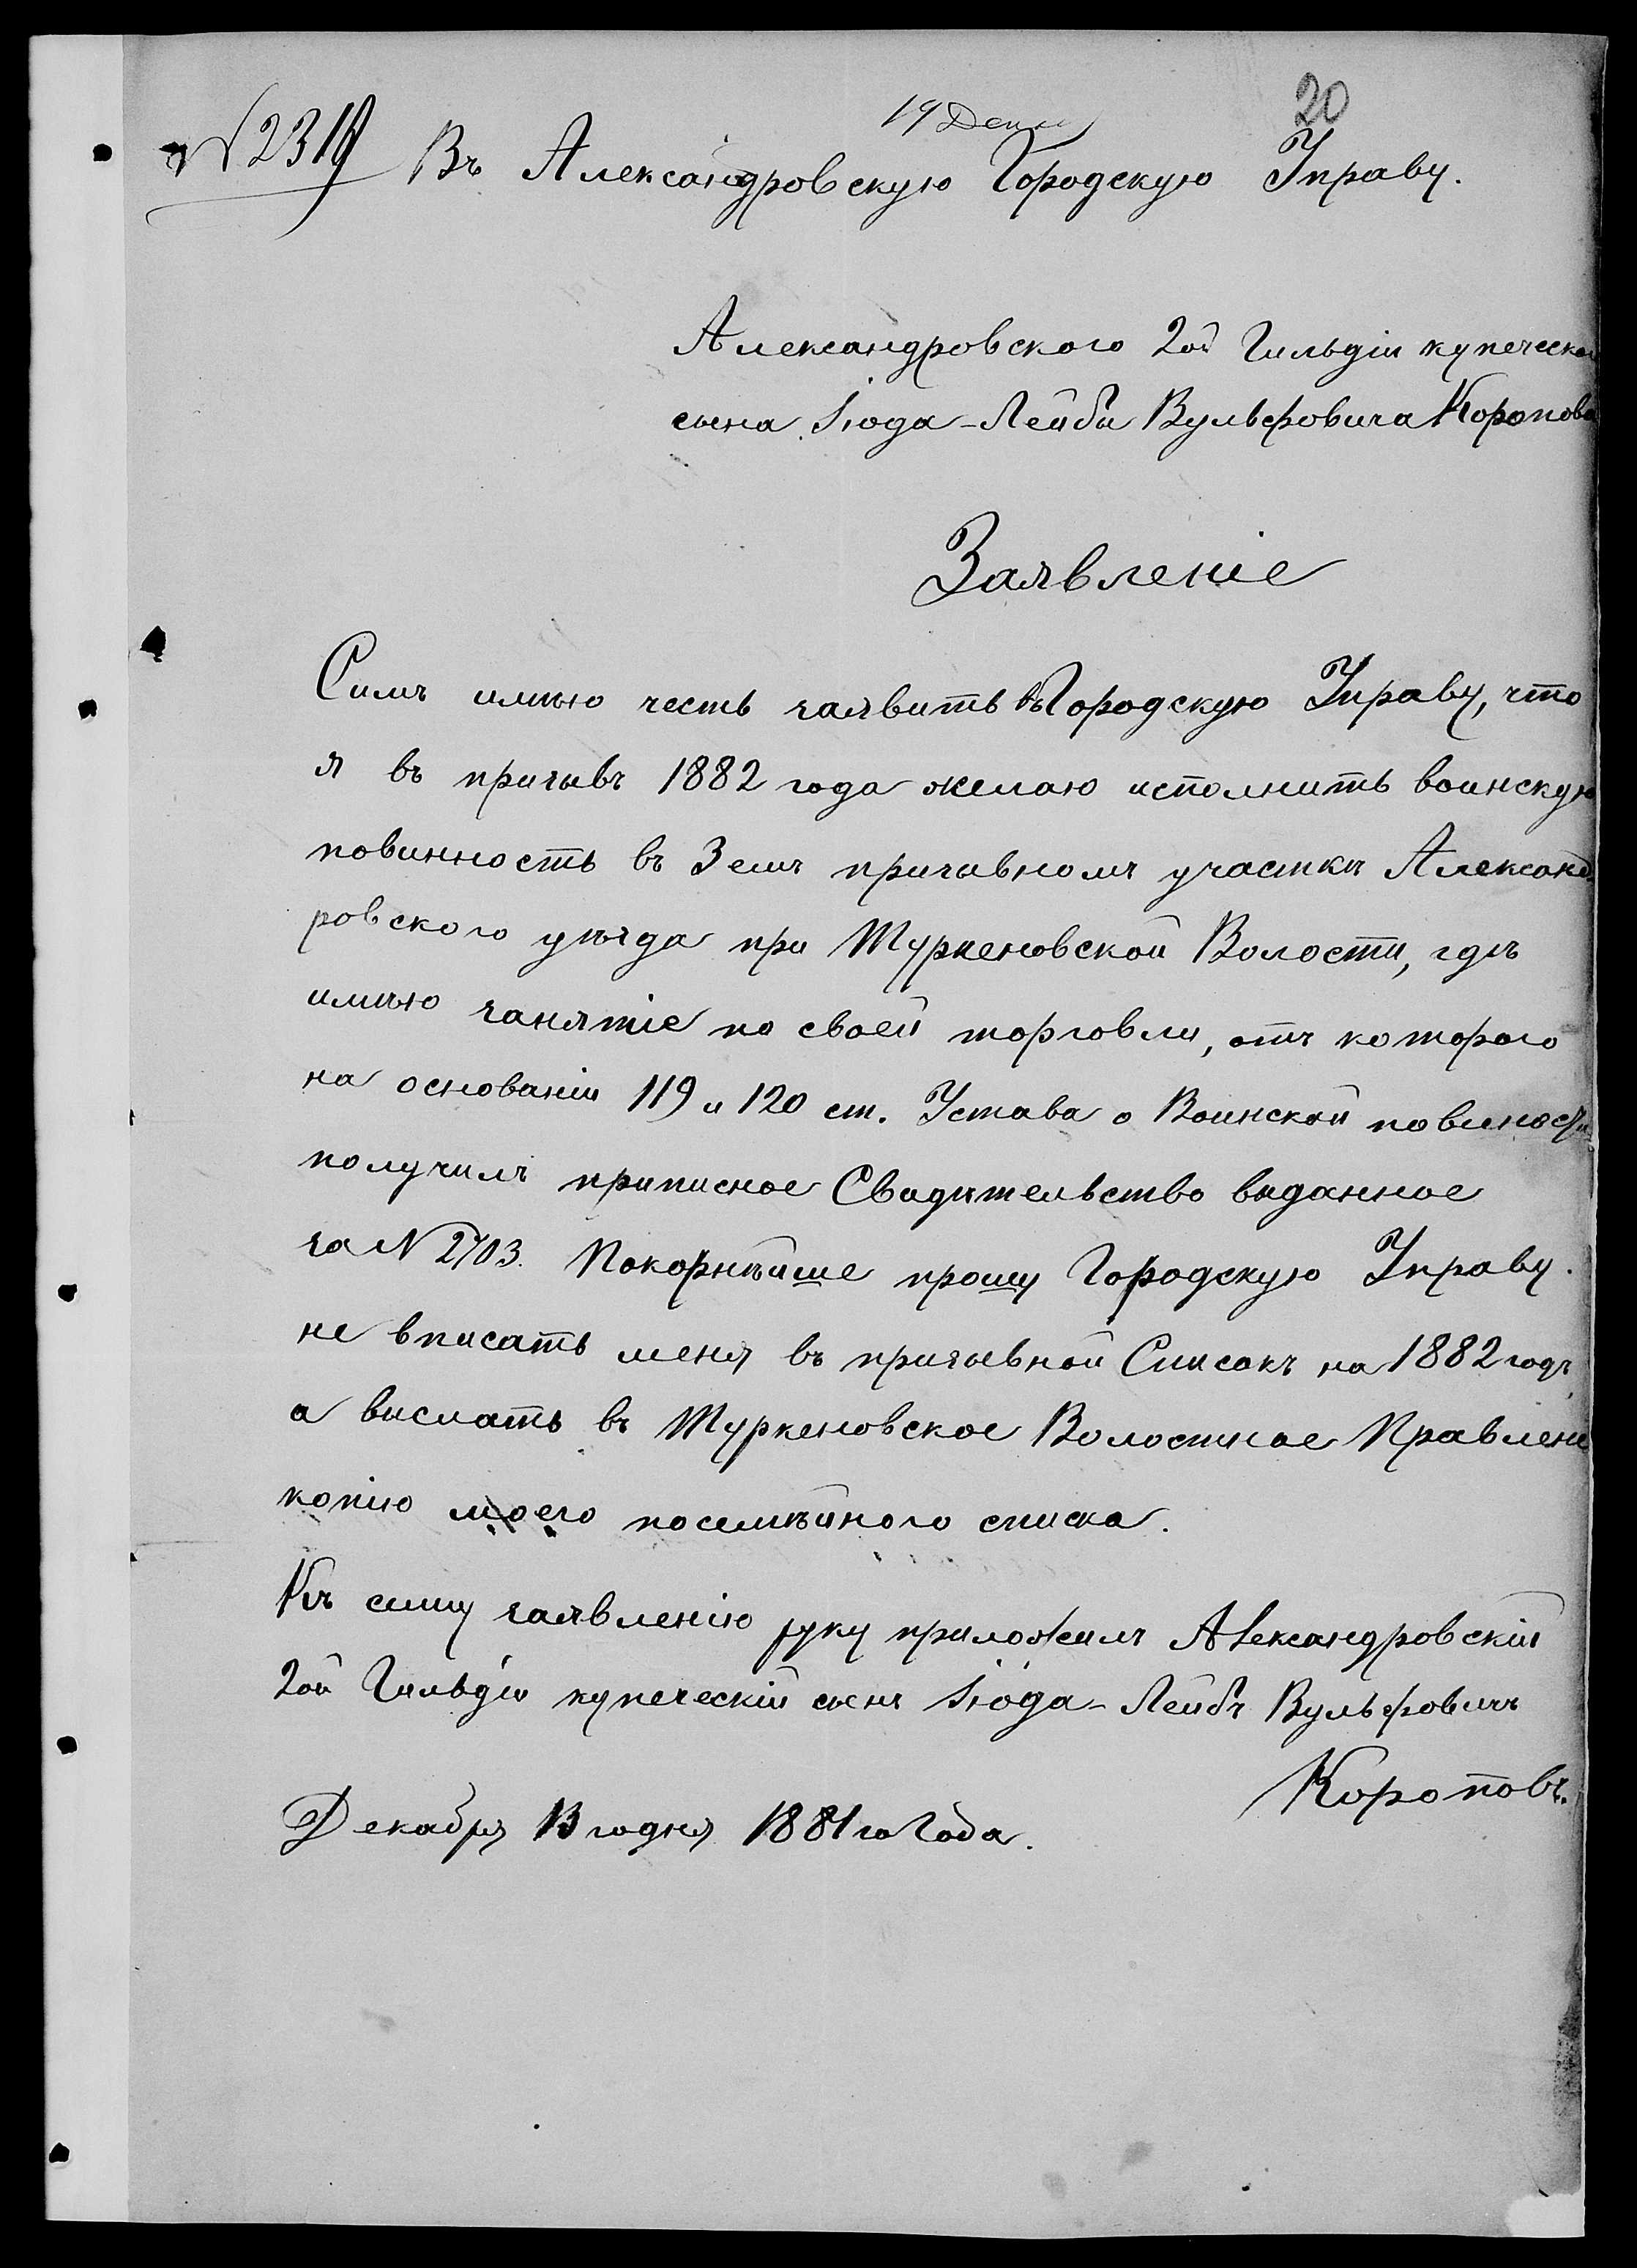 20
19 Дек
№ 2319 Въ Александровскую Городскую Управу.
Александровского 2ой Гильдіи купеческаго
сына Іюда-Лейби Вульфовича Коропова
Заявленіе
Симъ имѣю честь заявить въ Городскую Управу, что
я въ призывъ 1882 года желаю исполнить воинскую
повинность въ 3емъ призывномъ участкѣ Александ-
ровского уѣзда при Туркеновской Волости, гдѣ
имѣю занятіе по своей торговли, отъ которого
на основаніи 119 и 120 ст. Устава о Воинской повиности
получилъ приписное Свидѣтельство виданное
за № 2703. Покорнѣйше прошу Городскую Управу.
не вписать меня въ призывной Списокъ на 1882 годъ,
а вислать въ Туркеновское Волостное Правлені
копію моего посемѣйного списка.
Къ сему заявленію руку приложилъ Александровскій
2ой Гильдіи купеческій сынъ Іюда-Лейбъ Вульфовичъ
Короповъ.
Декабря 13 го дня 1881 го Года.